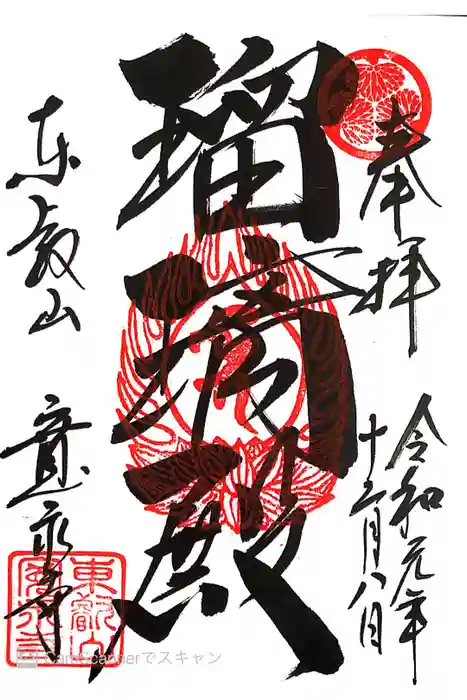 奉拝
令和元年
十二月八日
瑠璃殿
東叡山
寛永寺
東叡山
寛永寺
CamScannerでスキャン